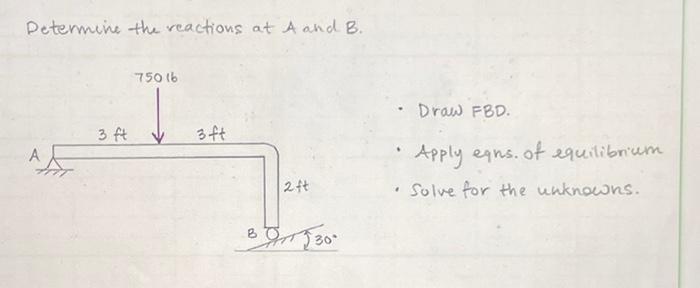 Determine the reactions at A and B.
750 lb
3 ft 3 ft
A
2 ft
B 30°
• Draw FBD.
• Apply eqns. of equilibrium
• Solve for the unknowns.